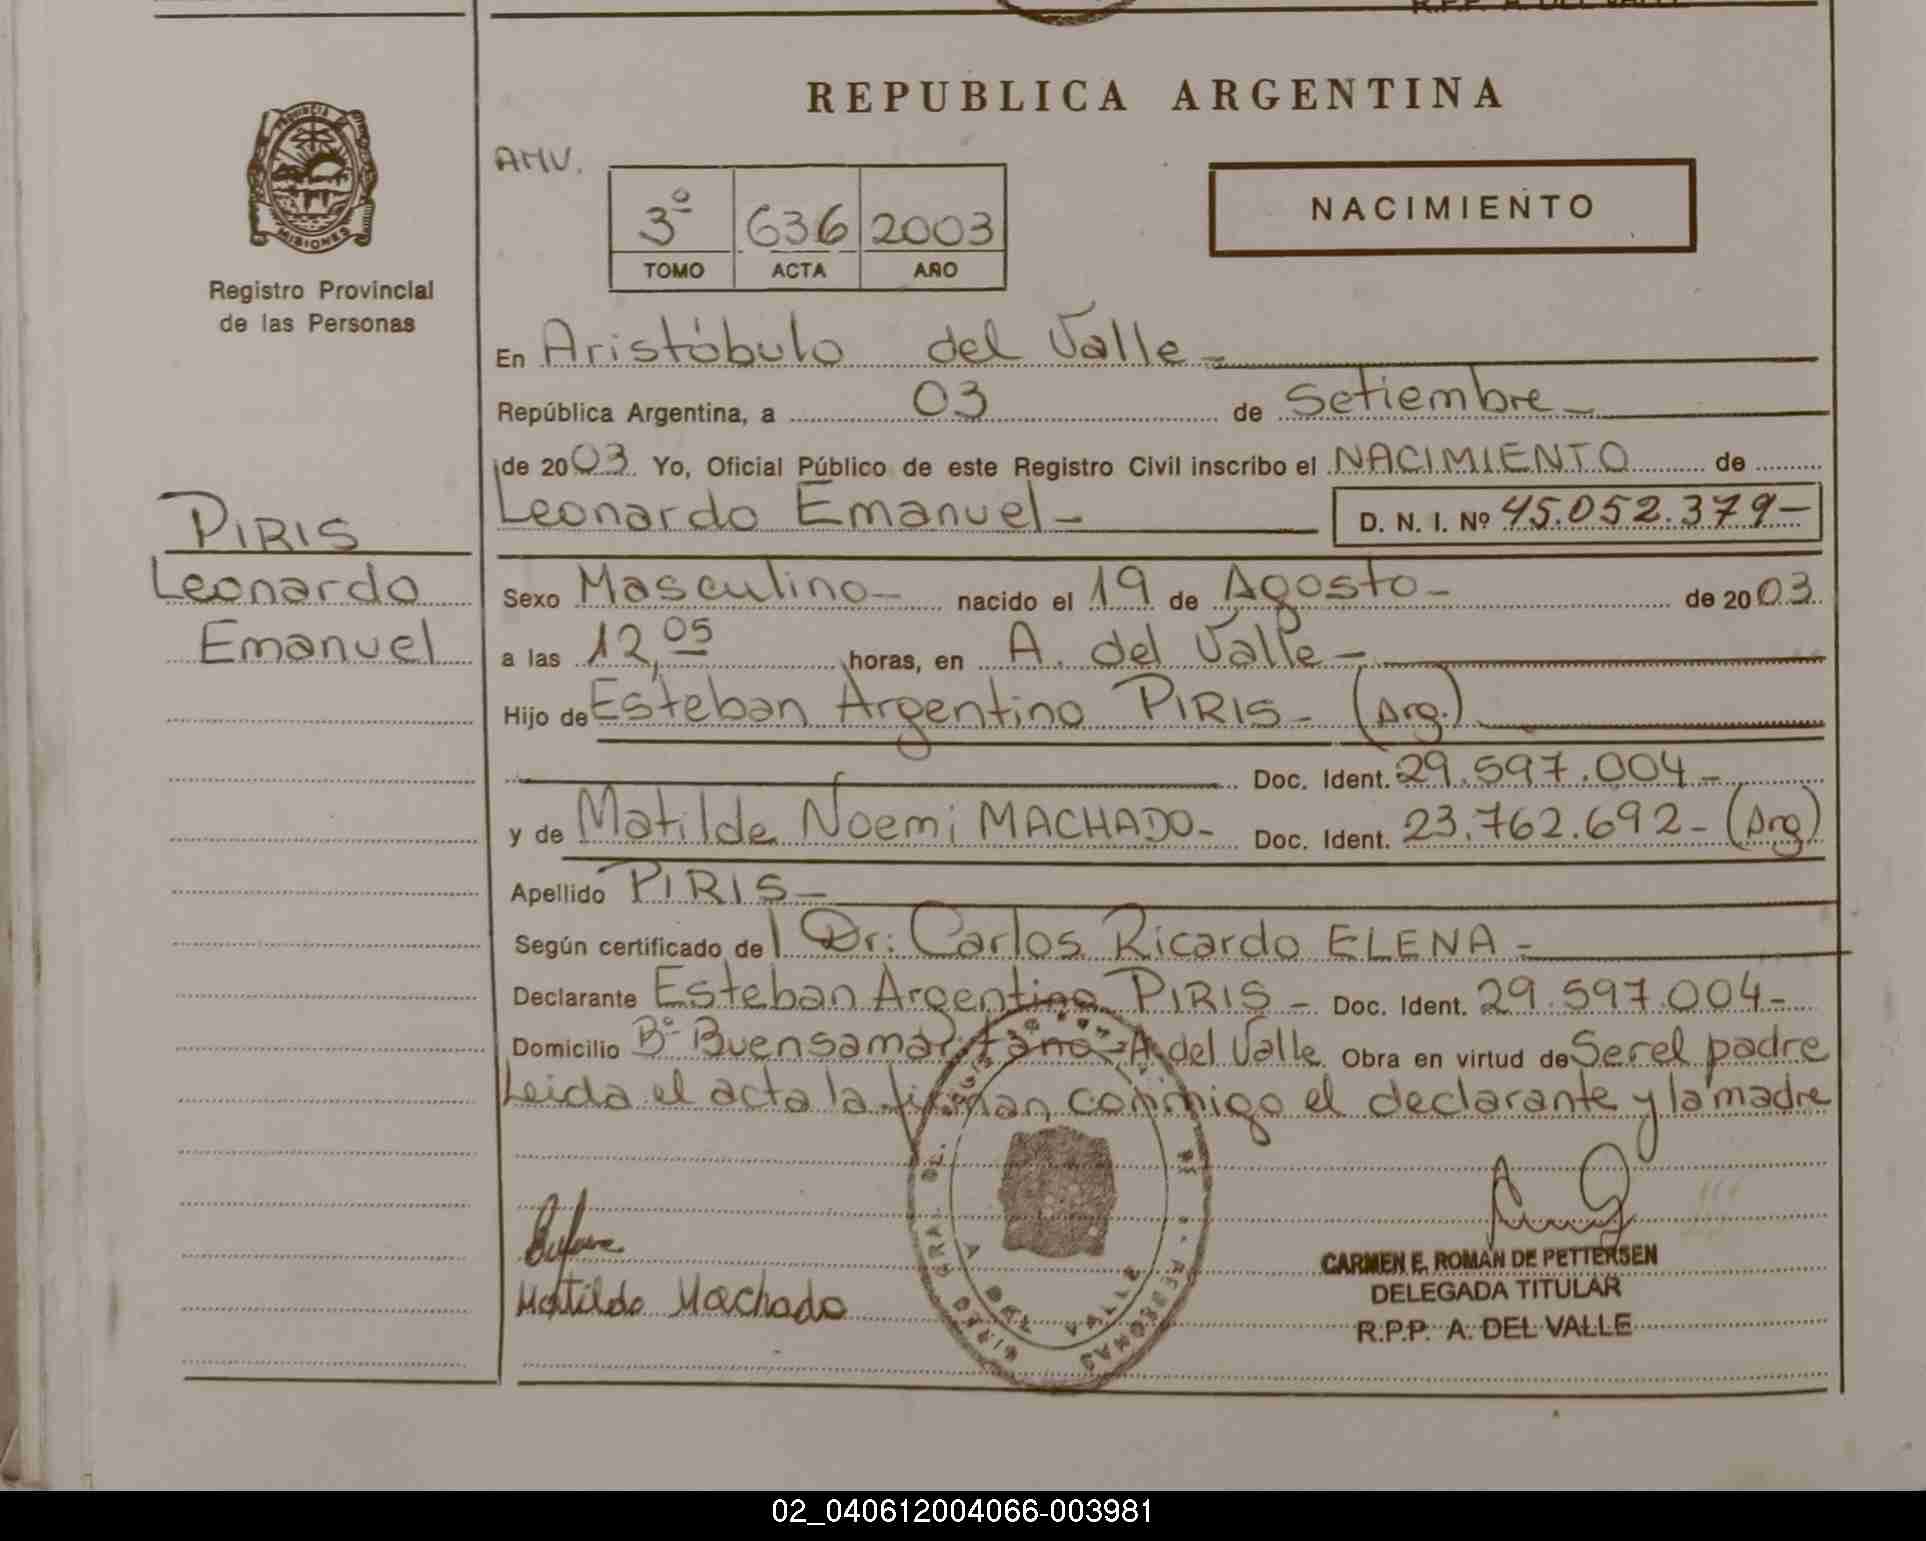 R.P.P. A. DEL VALLE
REPUBLICA ARGENTINA
PROVINCIA
MISIONES
Registro Provincial
de las Personas
AMV.
NACIMIENTO
3º 636 2003
TOMO ACTA AÑO
En Aristóbulo del Valle-
República Argentina, a 03 de Setiembre-
de 2003. Yo, Oficial Público de este Registro Civil inscribo el NACIMIENTO de
Leonardo Emanuel- D. N. I. Nº 45.052.379-
PIRIS
Leonardo
Emanuel
Sexo Masculino- nacido el 19 de Agosto- de 2003.
a las 12,05 horas, en A. del Valle-
Hijo de Esteban Argentino PIRIS- (Arg.)
Doc. Ident. 29.597.004-
y de Matilde Noemi MACHADO- Doc. Ident. 23.762.692- (Arg)
Apellido PIRIS-
Según certificado de l Dr: Carlos Ricardo ELENA-
Declarante Esteban Argentino PIRIS- Doc. Ident. 29.597.004-
Domicilio Bº Buensamaritano-A.del Valle. Obra en virtud de Ser el padre
Leida el acta la firman conmigo el declarante y la madre
Matilde Machado
CARMEN E. ROMAN DE PETTERSEN
DELEGADA TITULAR
R.P.P. A. DEL VALLE
A. DEL VALLE
PERSONAS
02_040612004066-003981